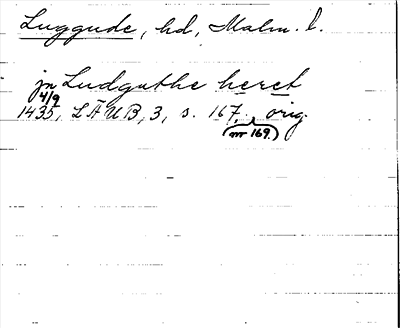 Luggude, hd, Malm. l.
jn Ludguthe heret
4/9
1435, LÄUB, 3, s. 167, orig.
(nr 169.)